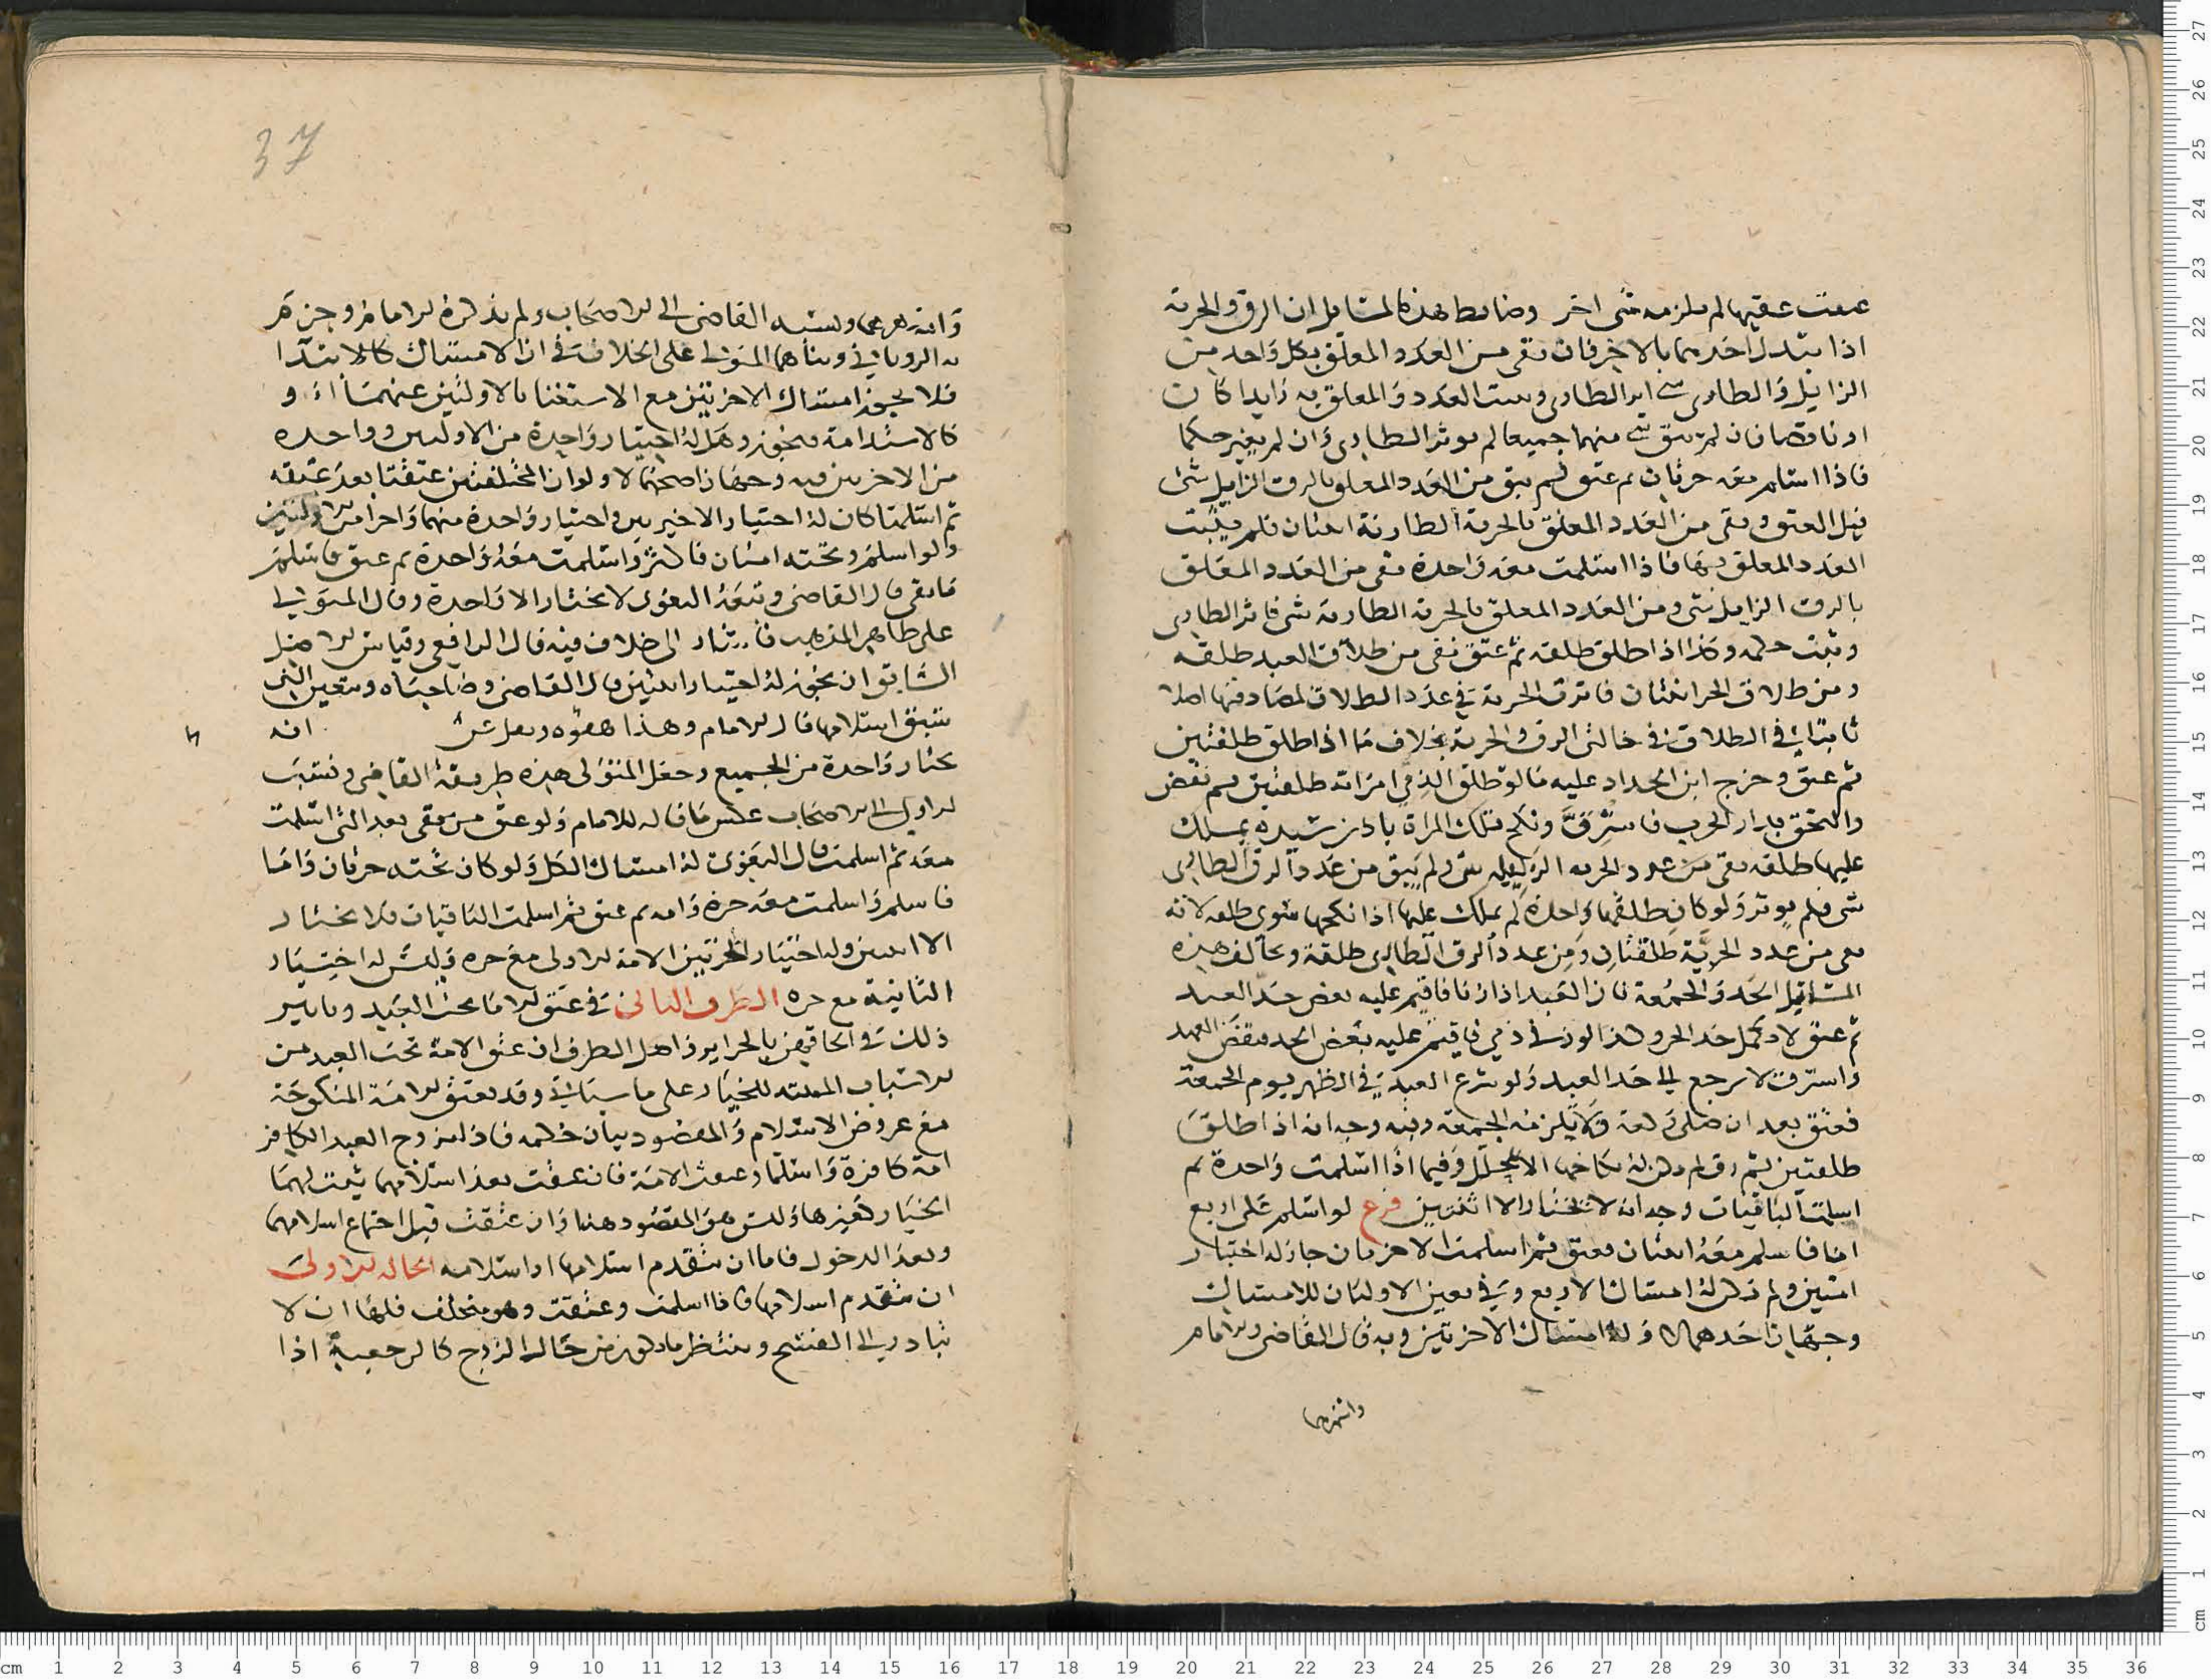 عتقت عقيبها لم يلزمه شى اخر وضابط هذه المسايل ان الرق والحرية
اذا تبدل احدهما بالاخر فان بقى من العدد المعلق بكل واحد من
الزايل والطارى شى اثر الطارى وثبت العدد والمعلق به زايدا كان
او ناقصا فان لم يبق شى منهما جميعا لم يوثر الطارى وان لم يغير حكما
فاذا اسلم معه حرتان ثم عتق لم يبق من العدد المعلق بالرق الزايل شى
قبل العتق وبقى من العدد المعلق بالحرية الطارية اثنان فلم يثبت
العدد المعلق بها فاذا اسلمت معه واحدة بقى من العدد المعلق
بالرق الزايل شى ومن العدد المعلق بالحرية الطارية شى فاثر الطارى
وثبت حكمه وكذا اذا طلق طلقه ثم عتق بقى من طلاق العبد طلقه
ومن طلاق الحر اثنتان فاثرت الحرية فى عدد الطلاق لمصادفتها اصلا
ثابتا فى الطلاق فى حالتى الرق والحرية بخلاف ما اذا طلق طلقتين
ثم عتق وخرج ابن الحداد عليه ما لو طلق الذمى امراته طلقتين ثم نقض
والتحق بدار الحرب فاسترق ونكح تلك المراة باذن سيده يملك
عليها طلقه بقى من عدد الحريه الزايله شى ولم يبق من عدد الرق الطارى
شى فلم يوثر ولو كان طلقها واحدة لم يملك عليها اذا نكحها سوى طلقه لانه
بقى من عدد الحرية طلقتان ومن عدد الرق الطارى طلقة وتخالف هذه
المسايل الحد والجمعة فان العبد اذا زنا فاقيم عليه بعض حد العبد
ثم عتق لا يكمل حد الحر وكذا لو زنى ذمى فاقيم عليه بعض الحد فنقض العهد
واسترق لا يرجع الى حد العبد ولو شرع العبد فى الظهر يوم الجمعة
فعتق بعد ان صلى ركعة ولا يلزمه الجمعة وفيه وجه انه اذا طلق
طلقتين ثم رق لم يكن له نكاحها الا بمحلل وفيما اذا اسلمت واحدة ثم
اسلمت الباقيات وجه انه لا يختار الا اثنتين فرع لو اسلم على اربع
اما فاسلم معه اثنتان فعتق ثم اسلمت الاخريان جاز له اختيار
اثنتين ولم يكن له امساك الاربع وفى تعين الاوليان للامساك
وجهان احدهما لا وله امساك الاخريتين وبه قال القاضى والامام
واشهرهما
37
وانه هو ونسبه القاضى الى الاصحاب ولم يذكره الامام وجزم
به الرويانى وبناهما المتولى على الخلاف فى ان الامساك كالابتدا
فلا يجوز امساك الاخريتين مع الاستغنا بالاوليين عنهما او
كالاستدامة فيجوز وهل له اختيار واحدة من الاوليين وواحده
من الاخريين فيه وجهان اصحهما لا ولو ان المختلفتين عتقتا بعد عتقه
ثم اسلمتا كان له اختيار الاخيريين واختيار واحدة منهما واحدا من الاوليين
ولو اسلم وتحته امتان فاكثر واسلمت معه واحدة ثم عتق فاسلم
ما بقى قال القاضى وتبعه البغوى لا يختار الا واحدة وقال المتولى
على ظاهر المذهب فاشار الى خلاف فيه قال الرافعى وقياس الاصل
السابق ان يجوز له اختيار اثنتين قال القاضى وصاحباه وتتعين التى
سبق اسلامها قال الامام وهذا هفوه ونقل عن انه
يختار واحدة من الجميع وجعل المتولى هذه طريقة القاضى ونسب
الاول الى الاصحاب عكس ما قاله الامام ولو عتق من بقى بعد التى اسلمت
معه ثم اسلمت قال البغوى له امساك الكل ولو كان تحته حرتان واما
فاسلم واسلمت معه حرة وامه ثم عتق ثم اسلمت الباقيات فلا يختار
الا اثنتين وله اختيار الحرتين الامة الاولى مع حره وليس له اختيار
الثانية مع حره الطرف الثانى فى عتق الاما تحت العبيد وتاثير
ذلك فى الحاقهن بالحراير واصل الطرف ان عتق الامة تحت العبد من
الاسباب المثبته للخيار على ما سياتى وقد تعتق الامة المنكوحة
مع عروض الاسلام والمقصود بيان حكمه فاذا تزوج العبد الكافر
امة كافرة واسلما وعتقت الامة فان عتقت بعد اسلامهما ثبت لها
الخيار كغيرها وليس هو المقصود هنا وان عتقت قبل اجتماع اسلامهما
وبعد الدخول فاما ان يتقدم اسلامها او اسلامه الحاله الاولى
ان يتقدم اسلامها فاذا اسلمت وعتقت وهو متخلف فلها ان لا
تبادر الى الفسخ وتنتظر ما يكون من حال الزوج كالرجعية اذا